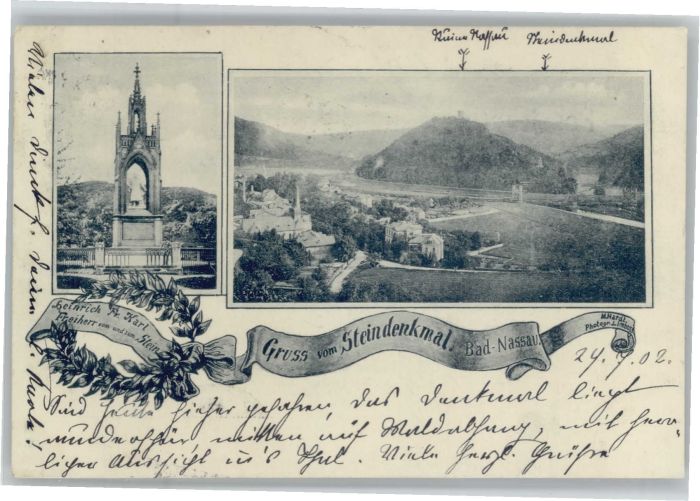 Ruine Nassau
Steindenkmal
Heinrich Fr. Karl
Freiherr vom und zum Stein
Gruss vom Steindenkmal. Bad-Nassau.
M. Hardt,
Photogr.
24.7.02.
Sind heute hierher gefahren, das Denkmal liegt
wunderschön mitten auf Waldabhang, mit herr-
licher Aussicht in's Thal. Viele herzl. Grüße
Vielen Dank f.